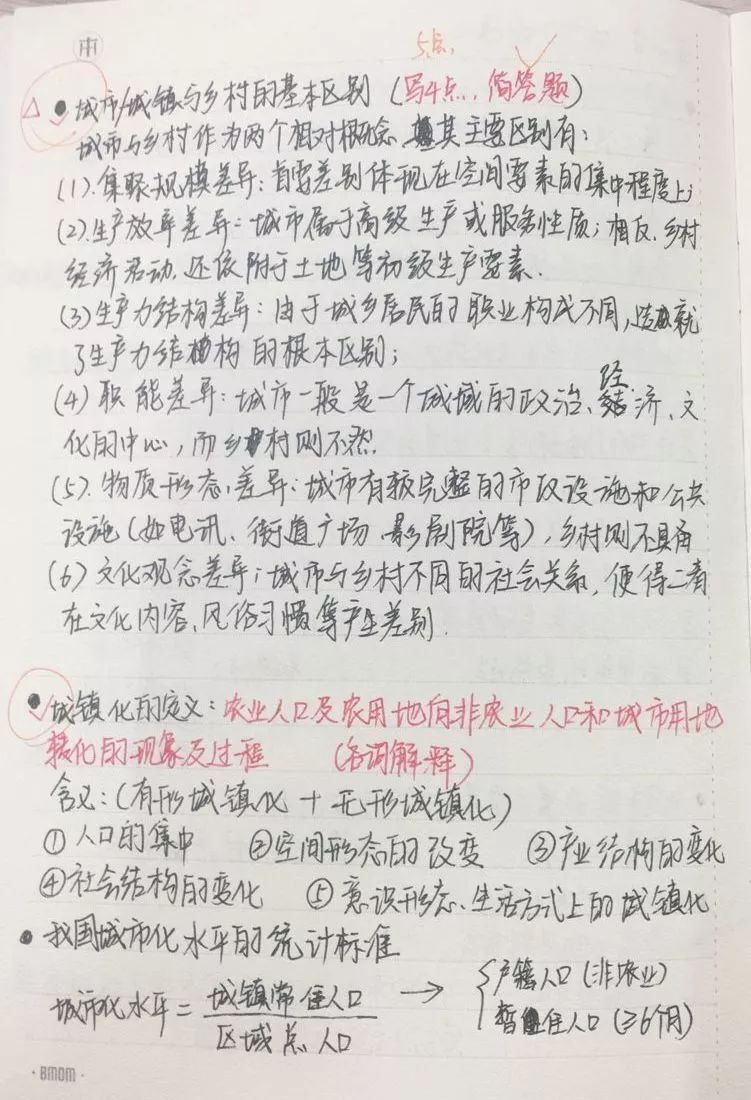 5点.
● 城市/城镇与乡村的基本区别 (写4点, 简答题)
城市与乡村作为两个相对概念, 其主要区别有:
(1). 集聚规模差异: 首要差别体现在空间要素的集中程度上;
(2). 生产效率差异: 城市属于高级生产或服务性质; 相反, 乡村
经济活动, 还依附于土地等初级生产要素.
(3) 生产力结构差异: 由于城乡居民的职业构成不同, 造就
了生产力结构的根本区别;
(4) 职能差异: 城市一般是一个城域的政治、经济、文
化的中心, 而乡村则不然.
(5). 物质形态差异: 城市有较完整的市政设施和公共
设施 (如电讯、街道广场、影剧院等), 乡村则不具备
(6) 文化观念差异; 城市与乡村不同的社会关系, 使得二者
在文化内容、风俗习惯等产生差别.
● 城镇化的定义: 农业人口及农用地向非农业人口和城市用地
转化的现象及过程 (名词解释)
含义: (有形城镇化 + 无形城镇化)
① 人口的集中 ②空间形态的改变 ③产业结构的变化
④社会结构的变化 ⑤ 意识形态、生活方式上的城镇化
● 我国城市化水平的统计标准
城市化水平 = 城镇常住人口 / 区域总人口 → { 户籍人口 (非农业)
暂住人口 (≥6个月)
·BMOM·